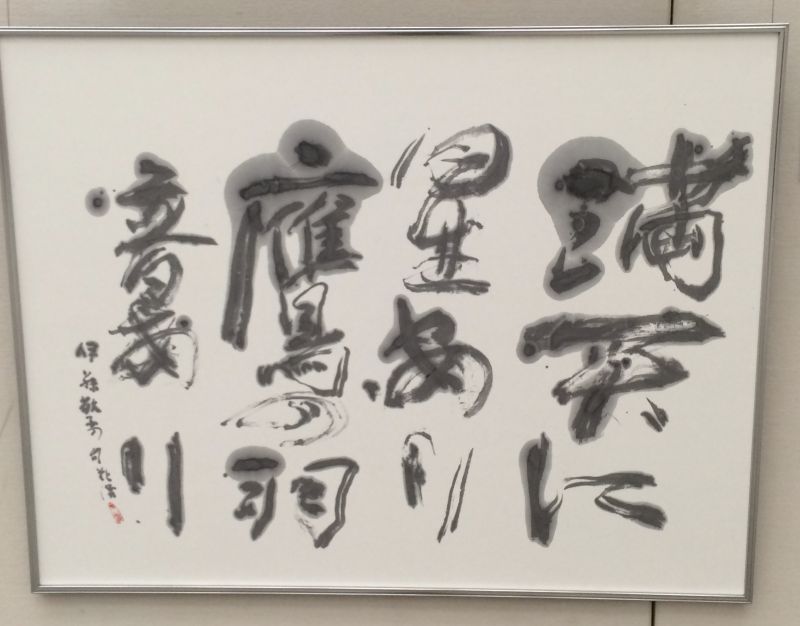 満天に
星あり
鷹の羽
音あり
伊藤敬 句